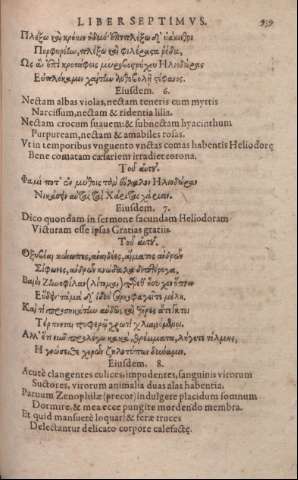 LIBER SEPTIMVS. 939
Πλέξω καὶ κρόκον ἡδὺν· ἐπιπλέξω δ' ὑάκινθον
Πορφυρέην, πλέξω καὶ φιλέραστα ῥόδα,
Ὡς ἂν ἐπὶ κροτάφοις μυροβοστρύχου Ἡλιοδώρας
Εὐπλόκαμον χαίτην ἀνθοβολῇ στέφανος.
Eiusdem. 6.
Nectam albas violas, nectam teneris cum myrtis
Narcissum, nectam & ridentia lilia.
Nectam crocum suauem: & subnectam hyacinthum
Purpuream, nectam & amabiles rosas.
Vt in temporibus vnguento vnctas comas habentis Heliodoræ
Bene comatam cæsariem irradiet corona.
Τοῦ αὐτοῦ.
Φαμί ποτ' ἐν μύθοις τὰν εὔλαλον Ἡλιοδώραν
Νικάσειν αὐτὰς τὰς Χάριτας χάρισιν.
Eiusdem. 7.
Dico quondam in sermone facundam Heliodoram
Victuram esse ipsas Gratias gratiis.
Τοῦ αὐτοῦ.
Ὀξυβόαι κώνωπες, ἀναιδέες, αἵματος ἀνδρῶν
Σίφωνες, κνώδαλα διπτέρυγα,
Βαιὸν Ζηνοφίλαν (λίτομαι) πάρεθ' ὕπνον
Εὕδειν τἀμὰ δ' ἰδοὺ σαρκοφαγεῖτε μέλη.
Καὶ θῆρες
Τέρπονται τρυφερῷ χρωτὶ χλιαινόμενοι.
Ἀλλ' ἔτι νῦν προλέγω κακὰ θρέμματα, λήγετε τόλμης,
Ἢ γνώσεσθε χερῶν ζηλοτύπων δύναμιν.
Eiusdem. 8.
Acutè clangentes culices, impudentes, sanguinis virorum
Suctores, virorum animalia duas alas habentia.
Paruum Zenophilæ (precor) indulgere placidum somnum
Dormire, & mea ecce pungite mordendo membra.
Et quid mansuetè loquar; & feræ truces
Delectantur delicato corpore calefactę.